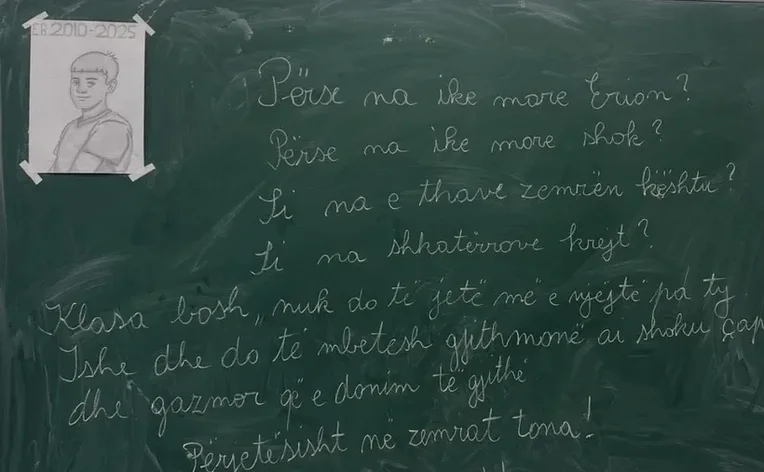 EB 2010-2025
Përse na ike more Erion?
Përse na ike more shok?
Si na e thave zemrën kështu?
Si na shkatërrove krejt?
Klasa bosh,, nuk do të jetë më e njëjtë pa ty
Ishe dhe do të mbetesh gjithmonë ai shoku çap
dhe gazmor që e donim të gjithë
Përjetësisht në zemrat tona!